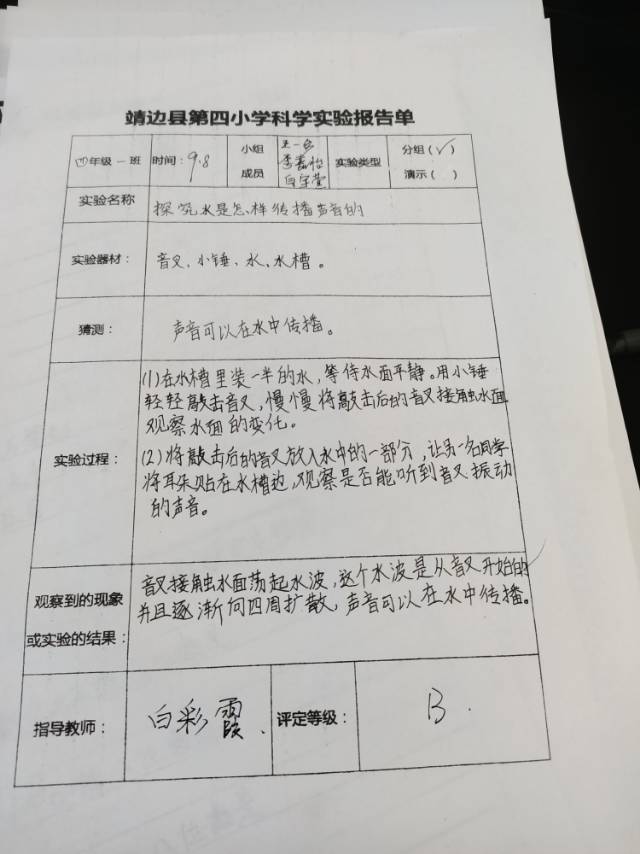 靖边县第四小学科学实验报告单
四年级一班 时间：9.8 小组成员 实验类型 分组（√）
演示（ ）
实验名称 探究水是怎样传播声音的
实验器材： 音叉、小锤、水、水槽。
猜测： 声音可以在水中传播。
实验过程：
(1)在水槽里装一半的水，等待水面平静。用小锤
轻轻敲击音叉，慢慢将敲击后的音叉接触水面
观察水面的变化。
(2)将敲击后的音叉放入水中的一部分，让另一名同学
将耳朵贴在水槽边，观察是否能听到音叉振动
的声音。
观察到的现象
或实验的结果：
音叉接触水面荡起水波，这个水波是从音叉开始的
并且逐渐向四周扩散，声音可以在水中传播。
指导教师： 白彩霞. 评定等级： B.